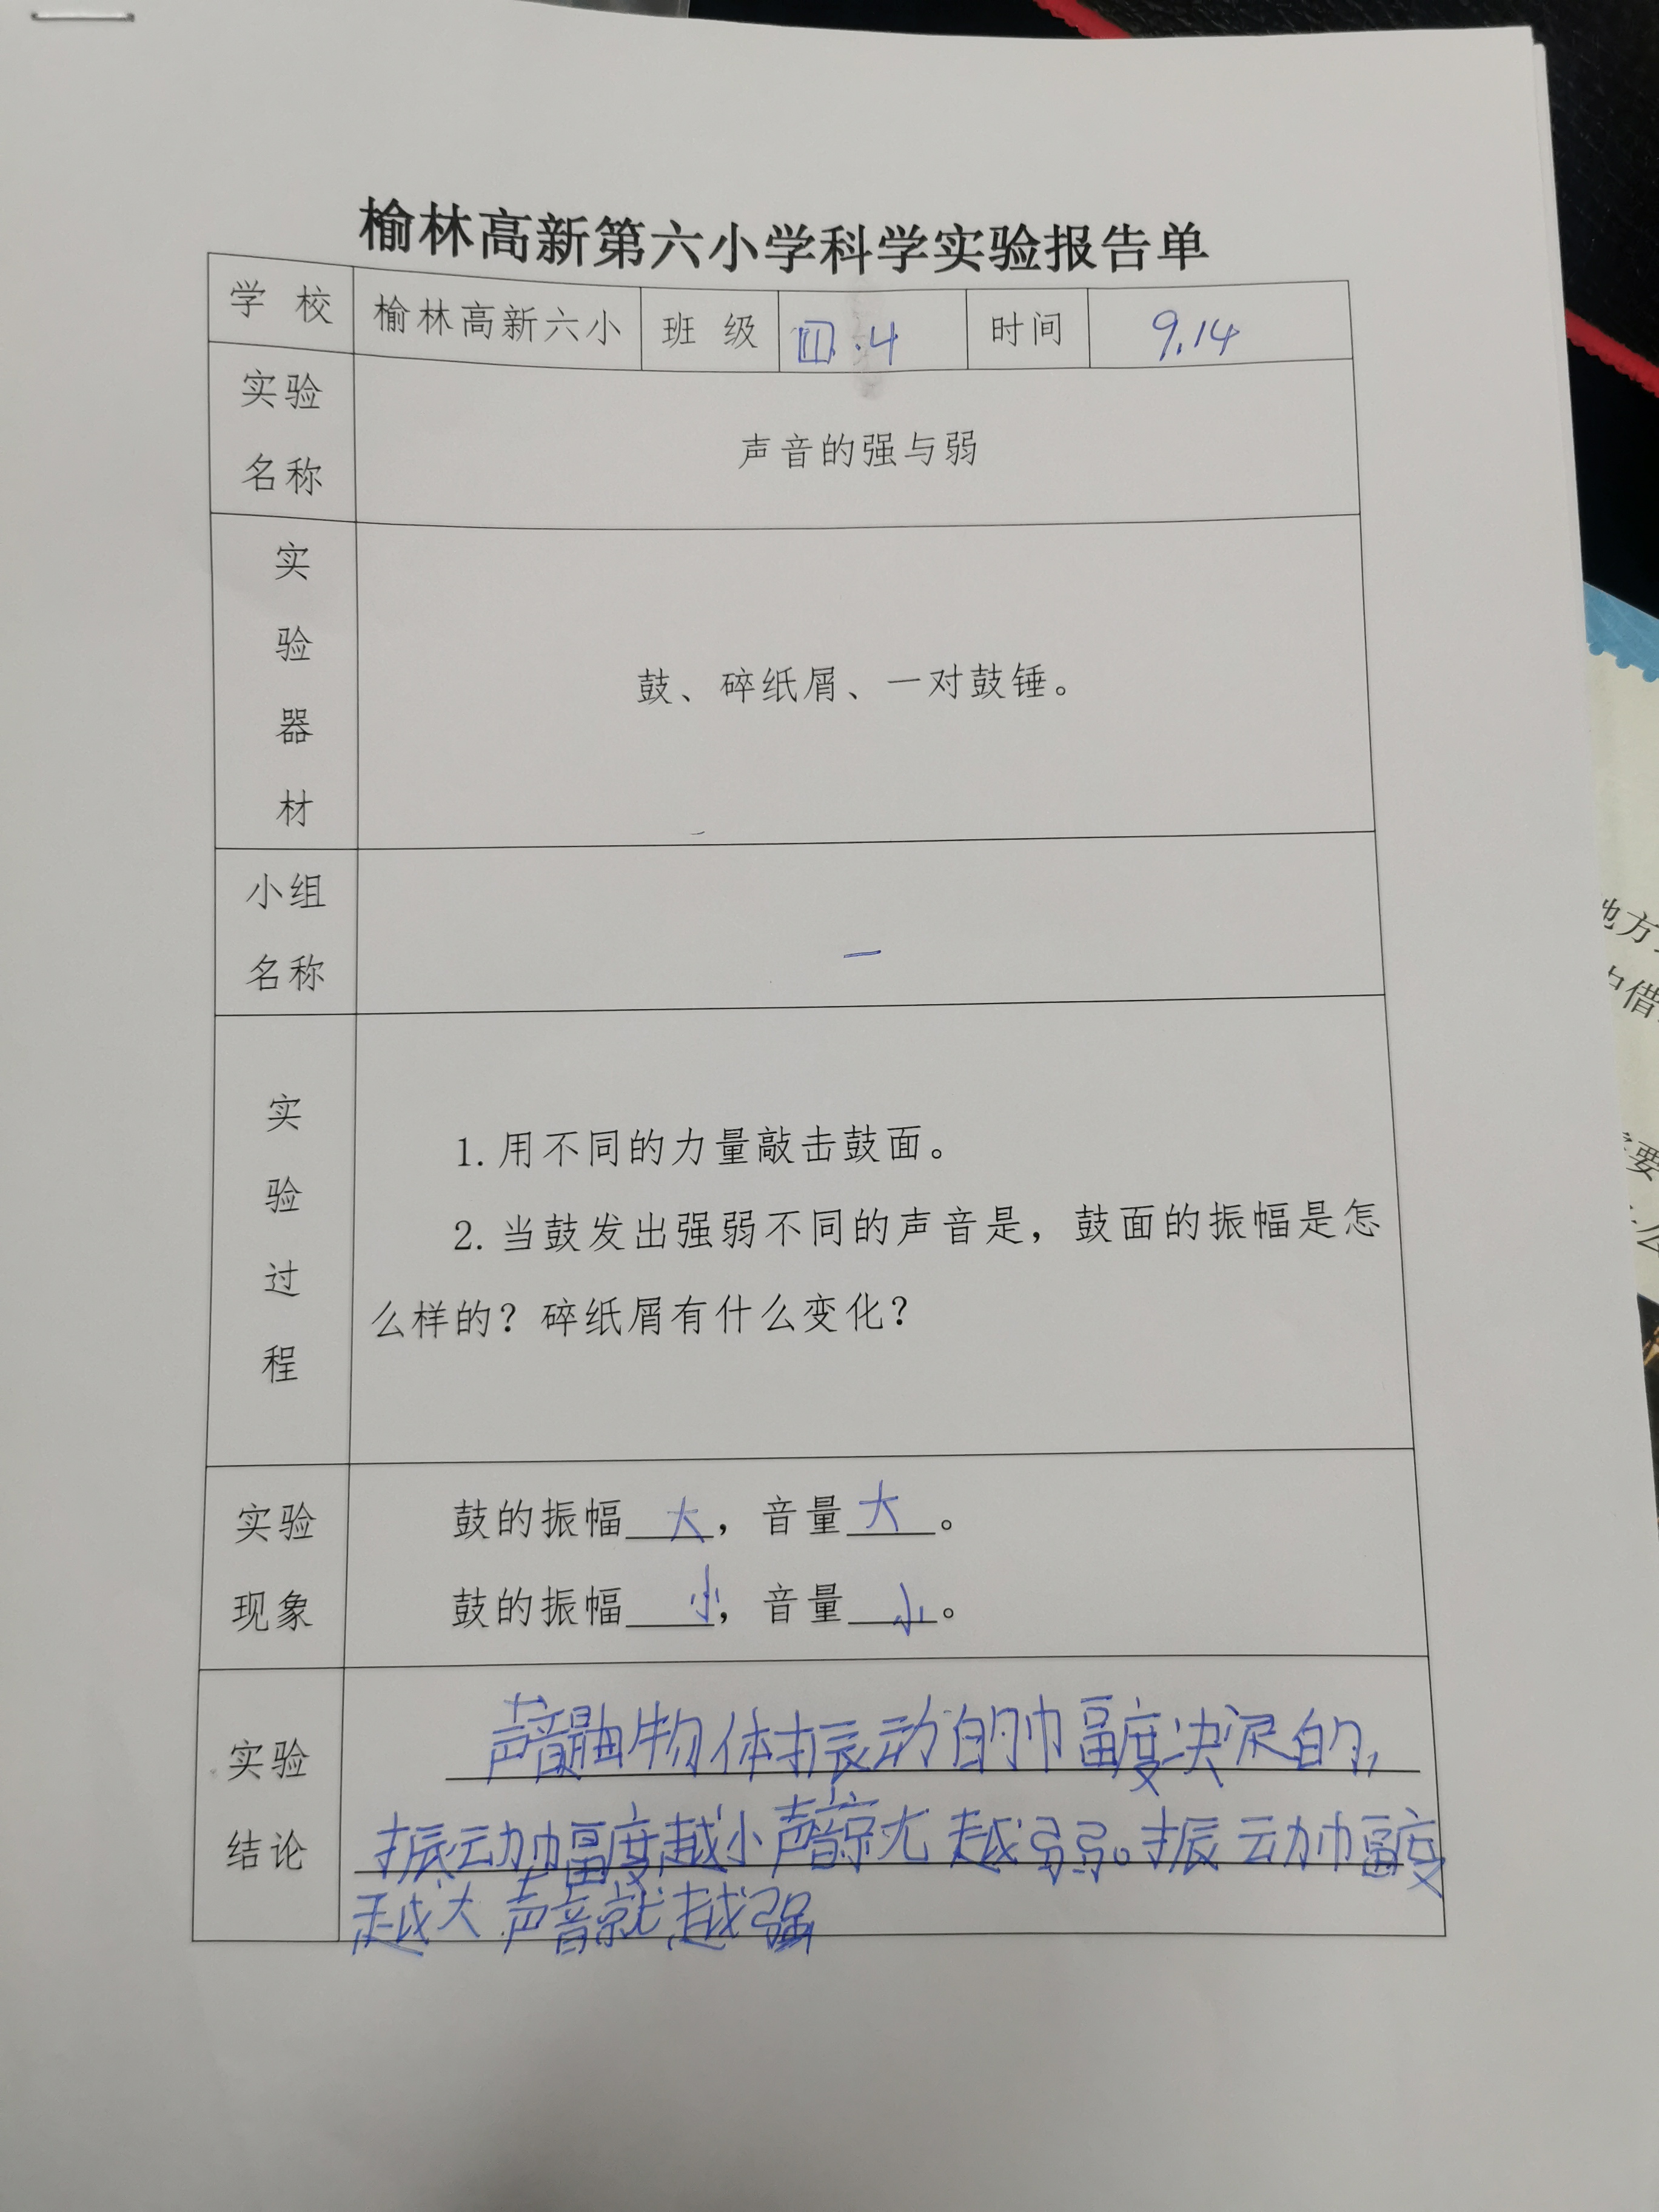 榆林高新第六小学科学实验报告单
学 校 榆林高新六小 班 级 四.4 时间 9.14
实验名称 声音的强与弱
实验器材 鼓、碎纸屑、一对鼓锤。
小组名称 一
实验过程
1. 用不同的力量敲击鼓面。
2. 当鼓发出强弱不同的声音是，鼓面的振幅是怎
么样的？碎纸屑有什么变化？
实验现象
鼓的振幅大，音量大。
鼓的振幅小，音量小。
实验结论
声音是由物体振动的幅度决定的，
振动幅度越小声音就越弱。振动幅度
越大声音就越强
地方
中借
要
么